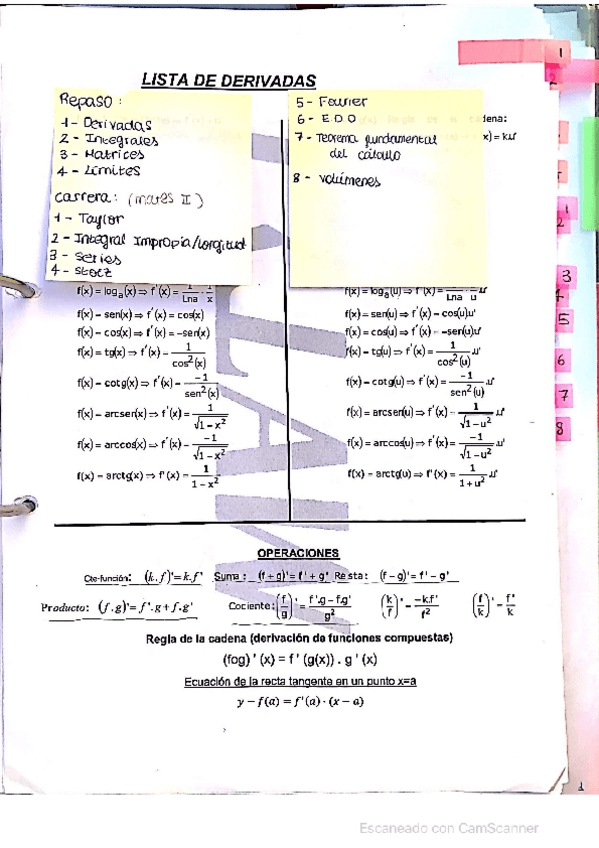 LISTA DE DERIVADAS
Repaso:
1- Derivadas
2- Integrales
3- Matrices
4- Límites
Carrera: (mates II)
1- Taylor
2- Integral Impropia/Longitud
3- Series
4- Stolz
5- Fourier
6- E.D.O
7- Teorema fundamental
del cálculo
8- Volúmenes
adena:
x) = k.u'
f(x) = logₐ(x) ⇒ f'(x) = 1/Lna · 1/x
f(x) = sen(x) ⇒ f'(x) = cos(x)
f(x) = cos(x) ⇒ f'(x) = -sen(x)
f(x) = tg(x) ⇒ f'(x) = 1/cos²(x)
f(x) = cotg(x) ⇒ f'(x) = -1/sen²(x)
f(x) = arcsen(x) ⇒ f'(x) = 1/√(1-x²)
f(x) = arccos(x) ⇒ f'(x) = -1/√(1-x²)
f(x) = arctg(x) ⇒ f'(x) = 1/(1-x²)
f(x) = logₐ(u) ⇒ f'(x) = 1/Lna · 1/u .u'
f(x) = sen(u) ⇒ f'(x) = cos(u)u'
f(x) = cos(u) ⇒ f'(x) = -sen(u)u'
f(x) = tg(u) ⇒ f'(x) = 1/cos²(u) .u'
f(x) = cotg(u) ⇒ f'(x) = -1/sen²(u) .u'
f(x) = arcsen(u) ⇒ f'(x) = 1/√(1-u²) .u'
f(x) = arccos(u) ⇒ f'(x) = -1/√(1-u²) .u'
f(x) = arctg(u) ⇒ f'(x) = 1/(1+u²) .u'
OPERACIONES
Cte-función: (k.f)'=k.f' Suma: (f+g)'=f'+g' Resta: (f-g)'=f'-g'
Producto: (f.g)'=f'.g+f.g' Cociente: (f/g)' = (f'.g-f.g')/g² (k/f)' = -k.f'/f² (f/k)' = f'/k
Regla de la cadena (derivación de funciones compuestas)
(fog)'(x) = f'(g(x)).g'(x)
Ecuación de la recta tangente en un punto x=a
y - f(a) = f'(a)·(x-a)
1
2
1
2
3
4
5
6
7
8
1
Escaneado con CamScanner